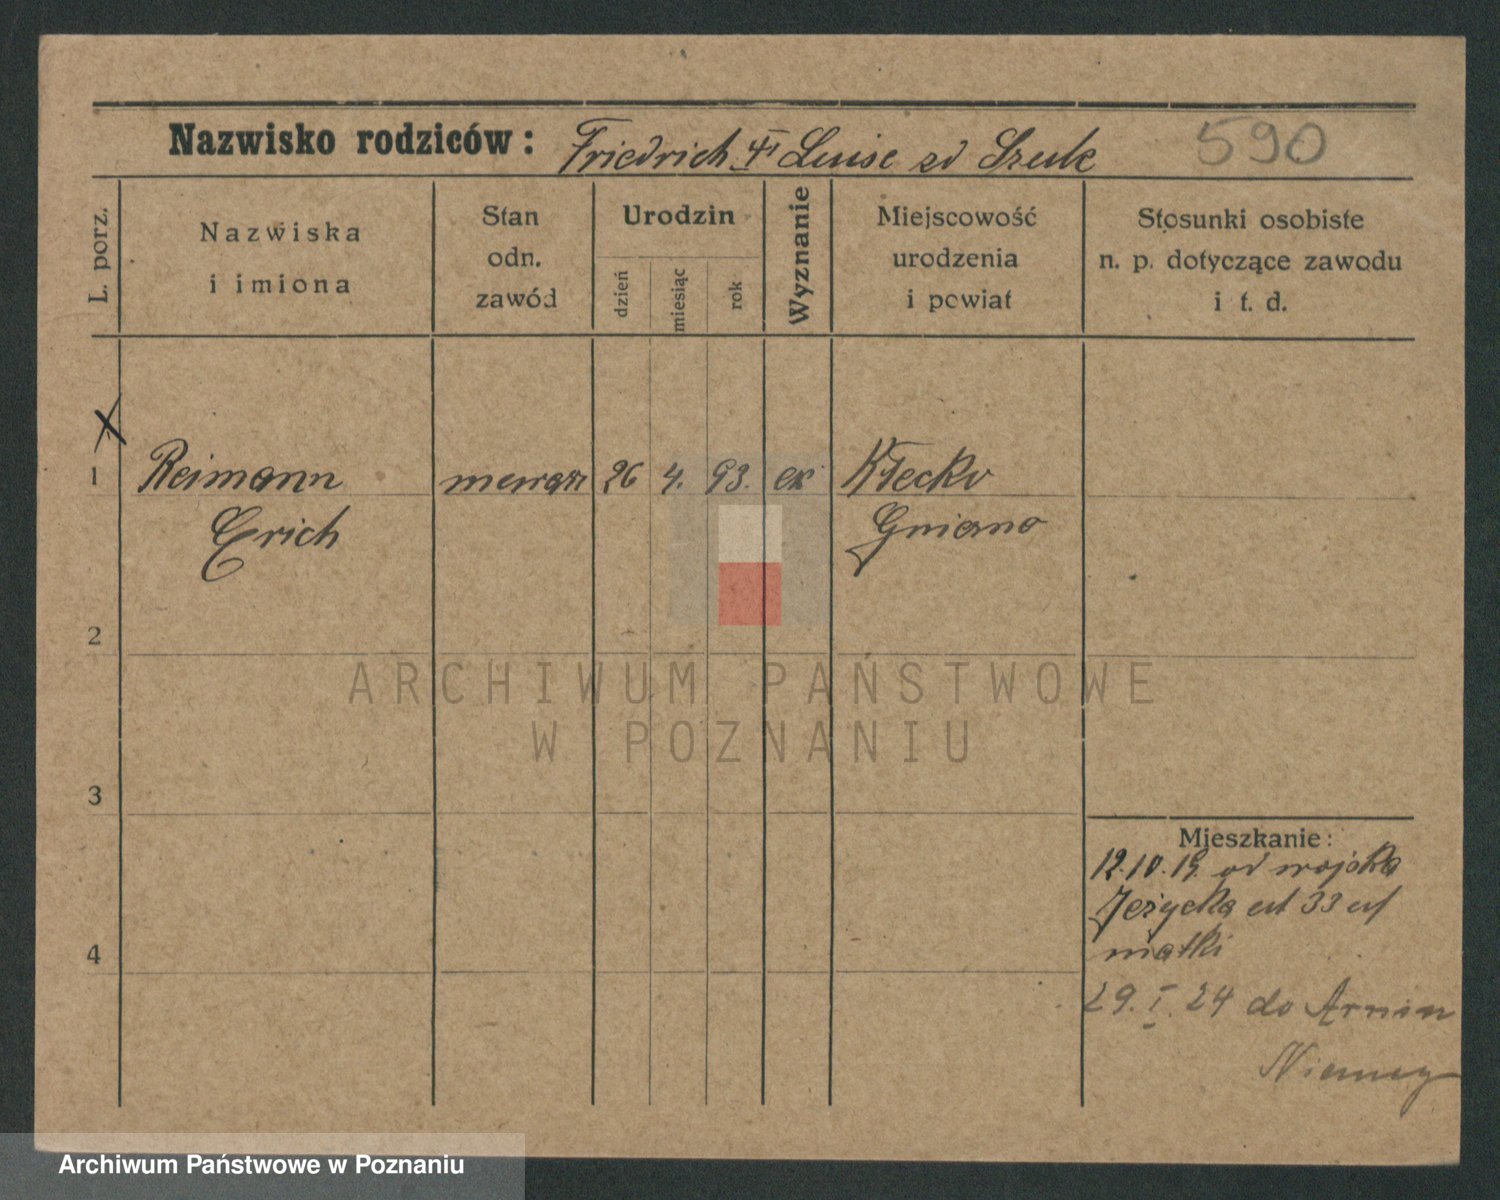 Nazwisko rodziców: Friedrich Luise Szulc 590
L. porz.
Nazwiska
i imiona
Stan
odn.
zawód
Urodzin
dzień
miesiąc
rok
Wyznanie
Miejscowość
urodzenia
i powiat
Stosunki osobiste
n. p. dotyczące zawodu
i t. d.
1 Reimann 26 4. 93. Kłecko
Erich Gniezno
2
ARCHIWUM PAŃSTWOWE
W POZNANIU
3
Mieszkanie:
12.10.19. od wojska
Jeżycka 33
matki
4
29. I. 24 do
Niemcy
Archiwum Państwowe w Poznaniu